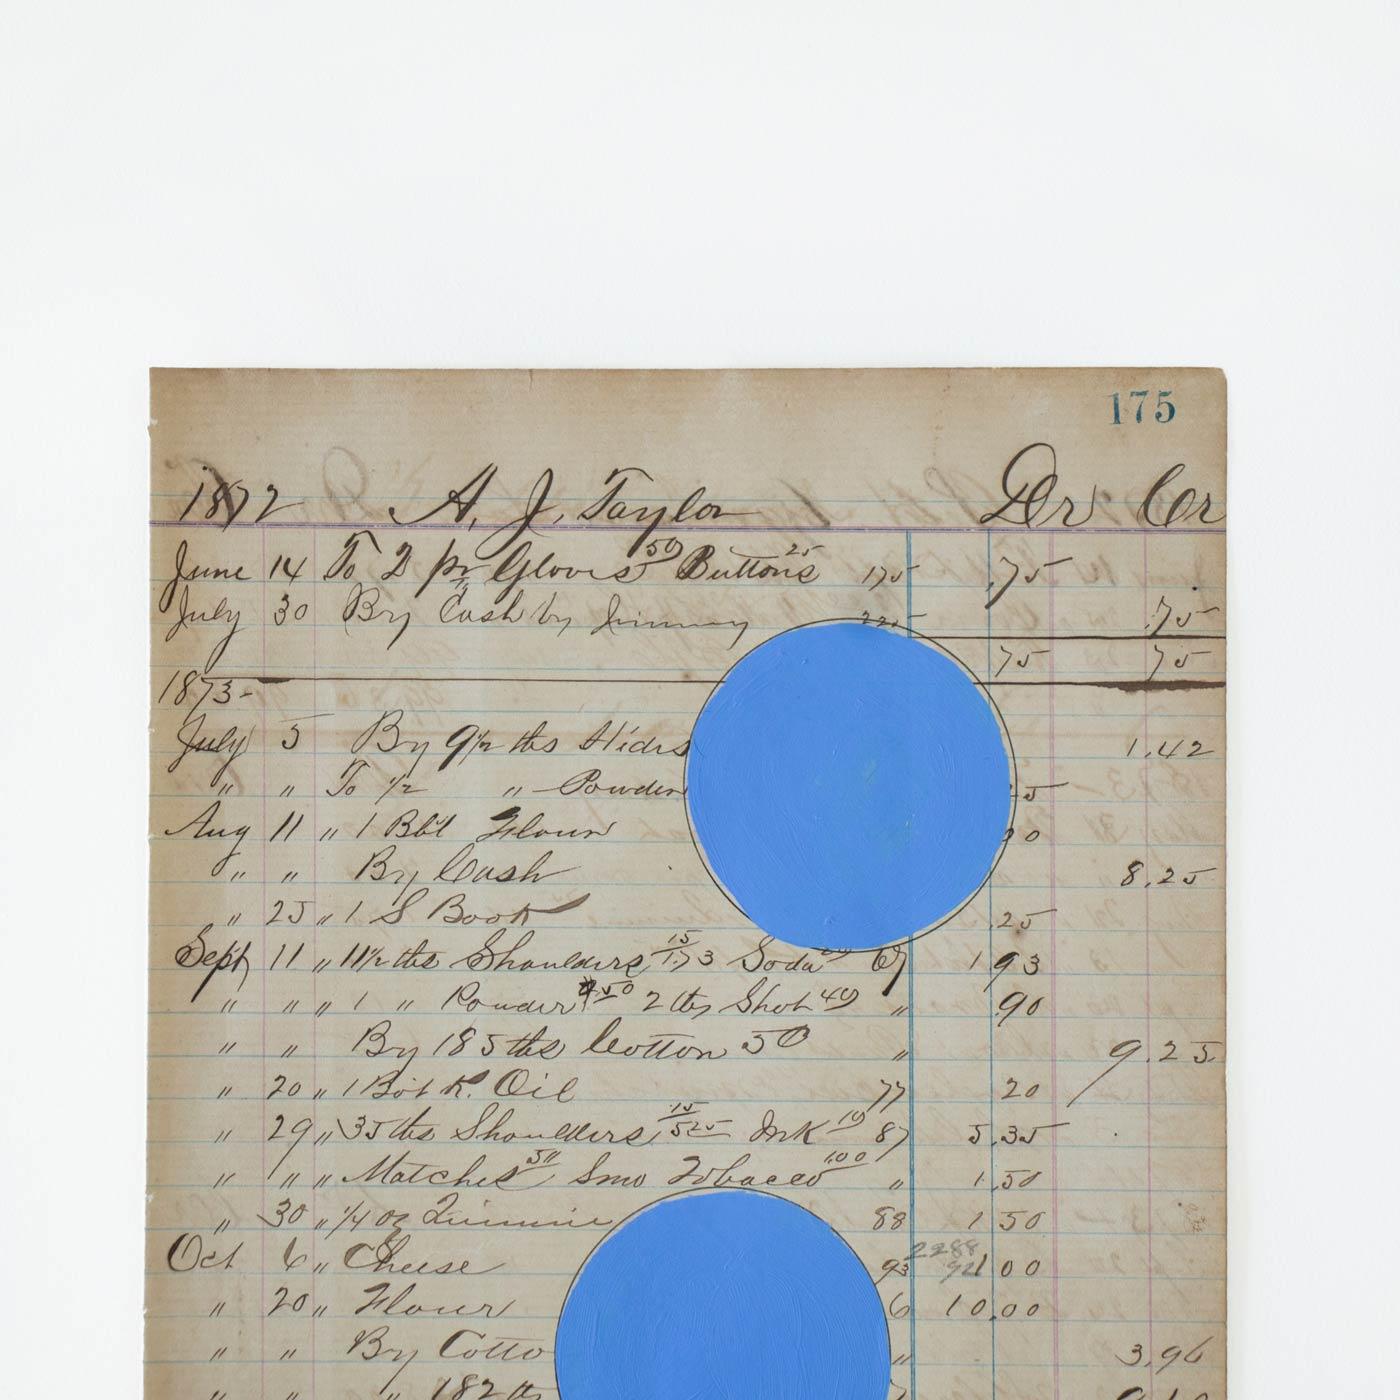 175
1872 A. J. Taylor Dr Cr
June 14 To 2 pr Gloves 50 Buttons 25 175 .75
July 30 By Cash by Jimmy 225 .75
75 75
1873-
July 5 By 9 1/2 lbs Hides 1.42
" " To 1/2 " Powder 5
Aug 11 " 1 Bbl Flour 20
" " By Cash 8.25
" 25 " 1 S Book .25
Sept 11 " 11 1/2 lbs Shoulders 15 1.73 Soda 20 67 1 93
" " " 1 " Powder .50 2 lbs Shot 40 " .90
" " By 185 lbs Cotton 50 " 9.25
" 20 " 1 Bot K. Oil 77 20
" 29 " 35 lbs Shoulders 15 525 Ink 10 87 5.35
" " " Matches 50 Smo Tobacco 1.00 " 1.50
" 30 " 1/4 oz 88 1 50
2288
Oct 6 " Cheese 93 1 00
" 20 " Flour 6 10.00
" " By Cotto " 3.96
" " " 182 lbs